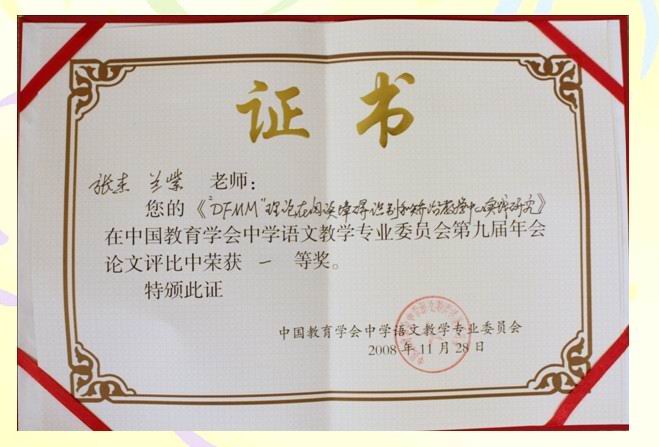 证书
张东 兰紫 老师:
您的《“DFMM”理论在阅读障碍识别和矫治教学中的实践研究》
在中国教育学会中学语文教学专业委员会第九届年会
论文评比中荣获 一 等奖。
特颁此证
中国教育学会中学语文教学专业委员会
2008年11月28日